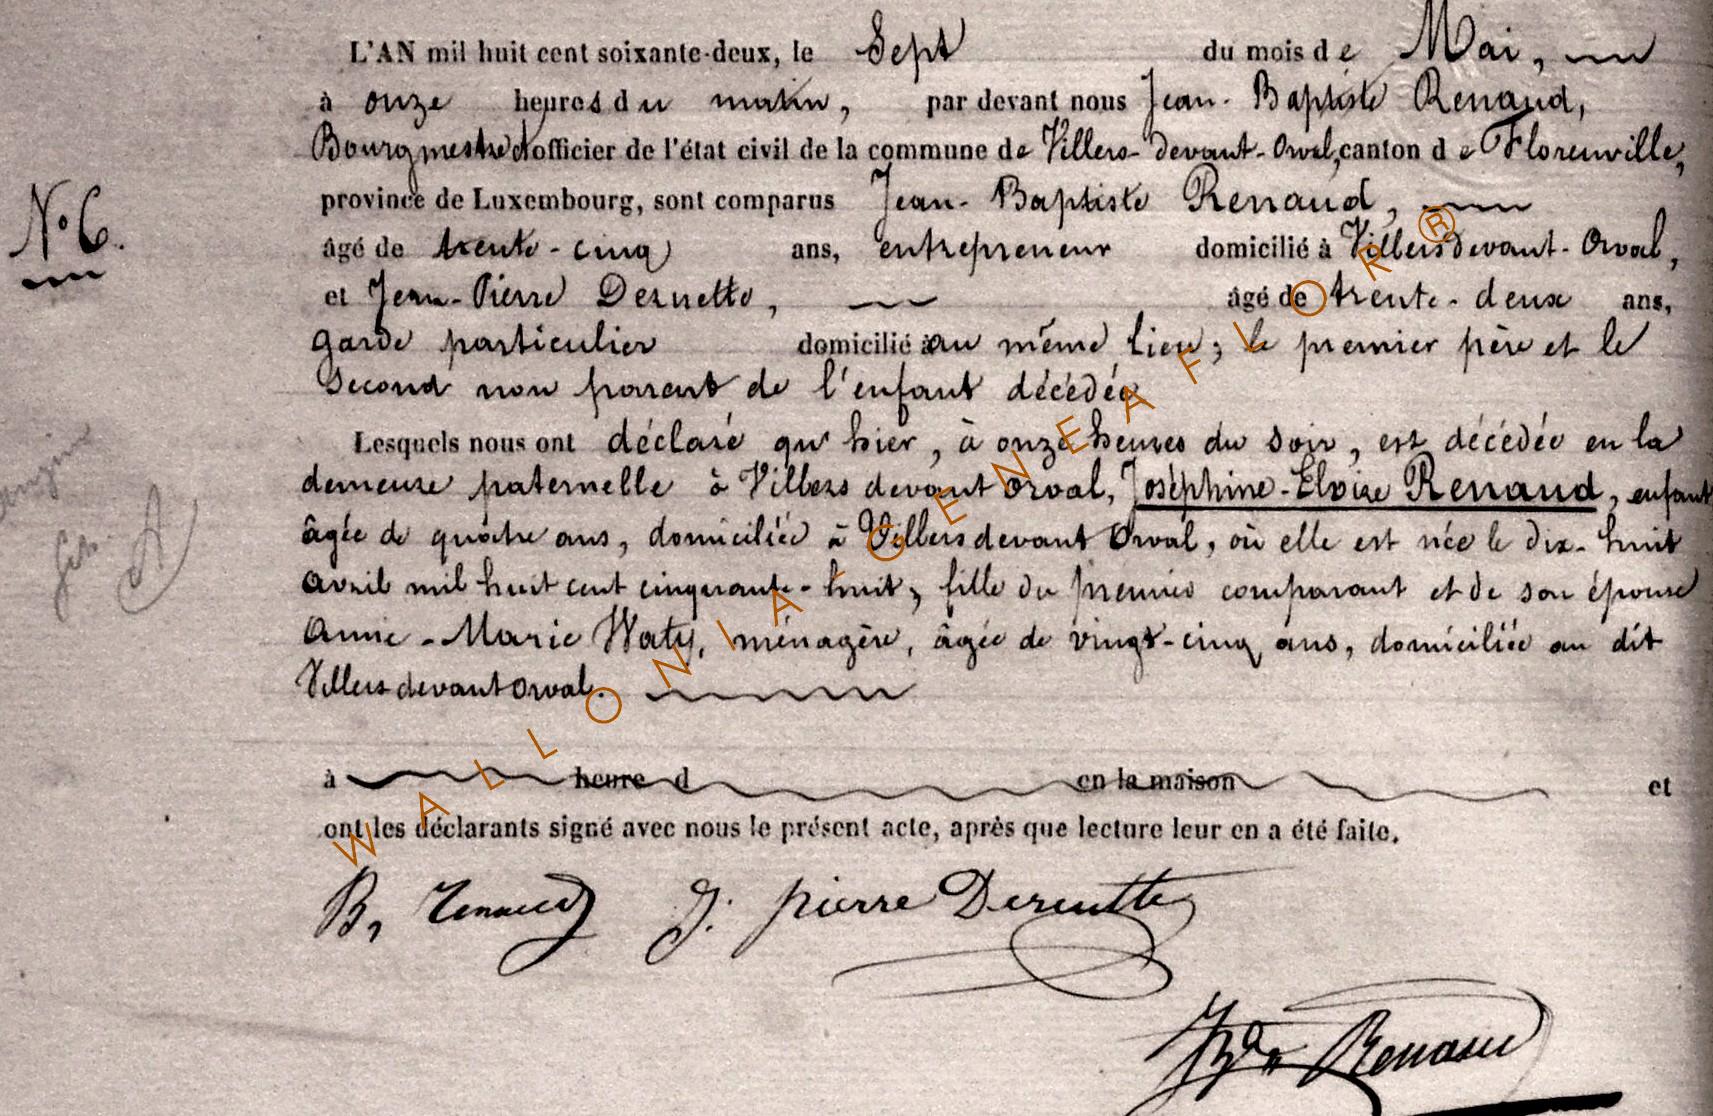 L'AN mil huit cent soixante-deux, le Sept du mois de Mai,
à onze heures du matin, par devant nous Jean-Baptiste Renaud,
Bourgmestre et officier de l'état civil de la commune de Villers-devant-Orval, canton de Florenville,
province de Luxembourg, sont comparus Jean-Baptiste Renaud,
N° 6.
âgé de trente-cinq ans, entrepreneur domicilié à Villers devant-Orval,
et Jean-Pierre Dernette, âgé de trente-deux ans,
garde particulier domicilié au même lieu; le premier père et le
second non parent de l'enfant décédée
Lesquels nous ont déclaré qu'hier, à onze heures du soir, est décédée en la
demeure paternelle à Villers devant Orval, Joséphine-Eloise Renaud, enfant
âgée de quatre ans, domiciliée à Villers devant Orval, où elle est née le dix-huit
avril mil huit cent cinquante-huit, fille du premier comparant et de son épouse
Anne-Marie Waty, ménagère, âgée de vingt-cinq ans, domiciliée au dit
Villers devant Orval.
à heure d en la maison et
ont les déclarants signé avec nous le présent acte, après que lecture leur en a été faite.
B, Renaud J. pierre
Renaud
WALLONIA GENEAFLOR®